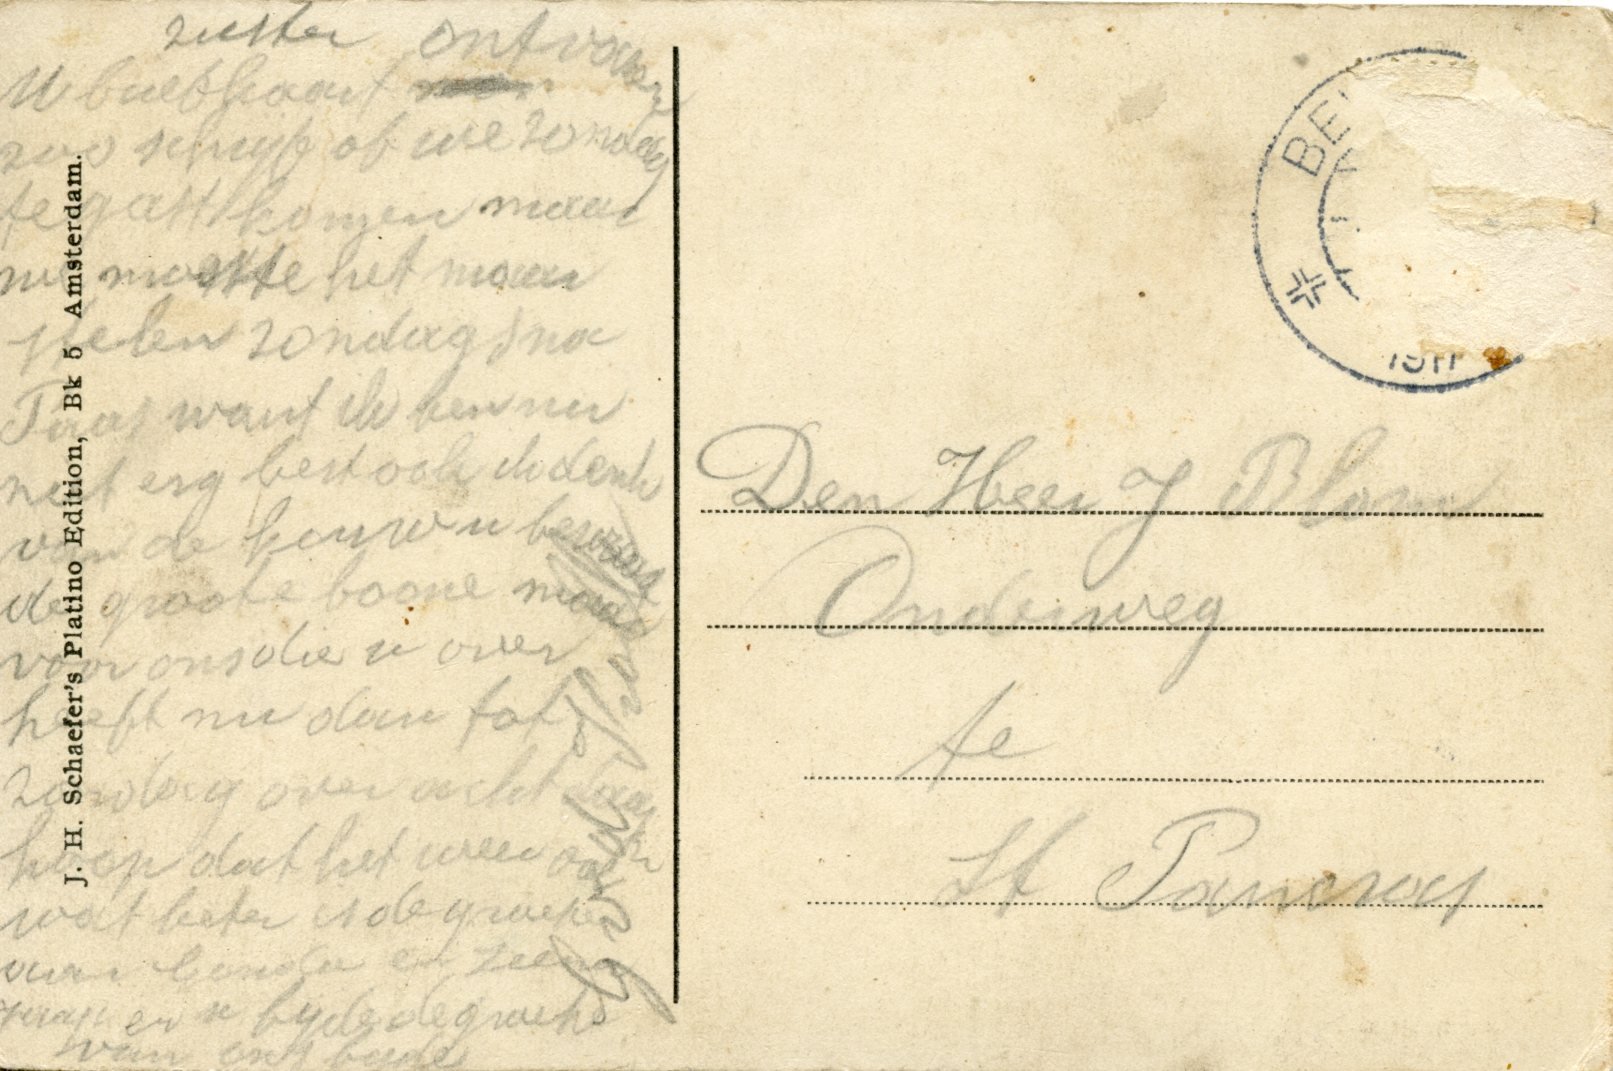 zuster ontvang
U briefkaart
zoo schrijft of we zondag
te gast komen maar
nu moste het maar
stelen zondag s na
Paas want ik ben nu
niet erg best ook ik denk
van de kouw u bewaar
de groote boone maar
voor ons die u over
heeft nu dan tot
zondag over acht daag
hoop dat het weer
wat beter is de groete
van en
en u byde de groete
van ons byde
J. H. Schaefer's Platino Edition, Bk 5 Amsterdam.
BE
1911
Den Heer J Blom
Onderweg
te
St Pancras